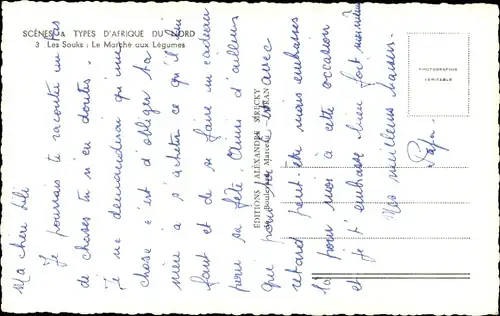 SCÈNES & TYPES D'AFRIQUE DU NORD
3 Les Souks : Le Marché aux Légumes
PHOTOGRAPHIE
VÉRITABLE
ÉDITIONS ALEXANDRE
Boulevard Marceau ORAN
Ma chère Lili
Je pourrais te raconter un tas
de choses tu n'en doutes.
Je ne demanderai qu'une
chose c'est d'obliger ta
mère a s'acheter ce qu'il lui
faut et de se faire un cadeau
pour sa fête. Chin d'ailleurs
que pour avec
retard peut-être mais embrasses
la pour moi à cette occasion
et je t'embrasse bien fort
Mes meilleurs baisers.
Papa